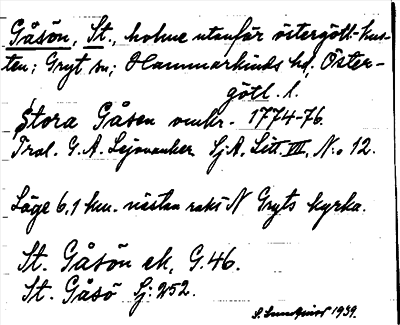 Gåsön, St., holme utanför östergötl.-kus-
ten; Gryt sn; Hammarkinds hd; Öster-
götl. l.
Stora Gåsen omkr. 1774-76.
Tral. G. A. Lejonanker Sj.A, Litt. III, N:o 12.
Läge 6,1 km. nästan rakt N Gryts kyrka.
St. Gåsön ek, G. 46.
St. Gåsö Sj: 252.
S. Lundqvist 1939.